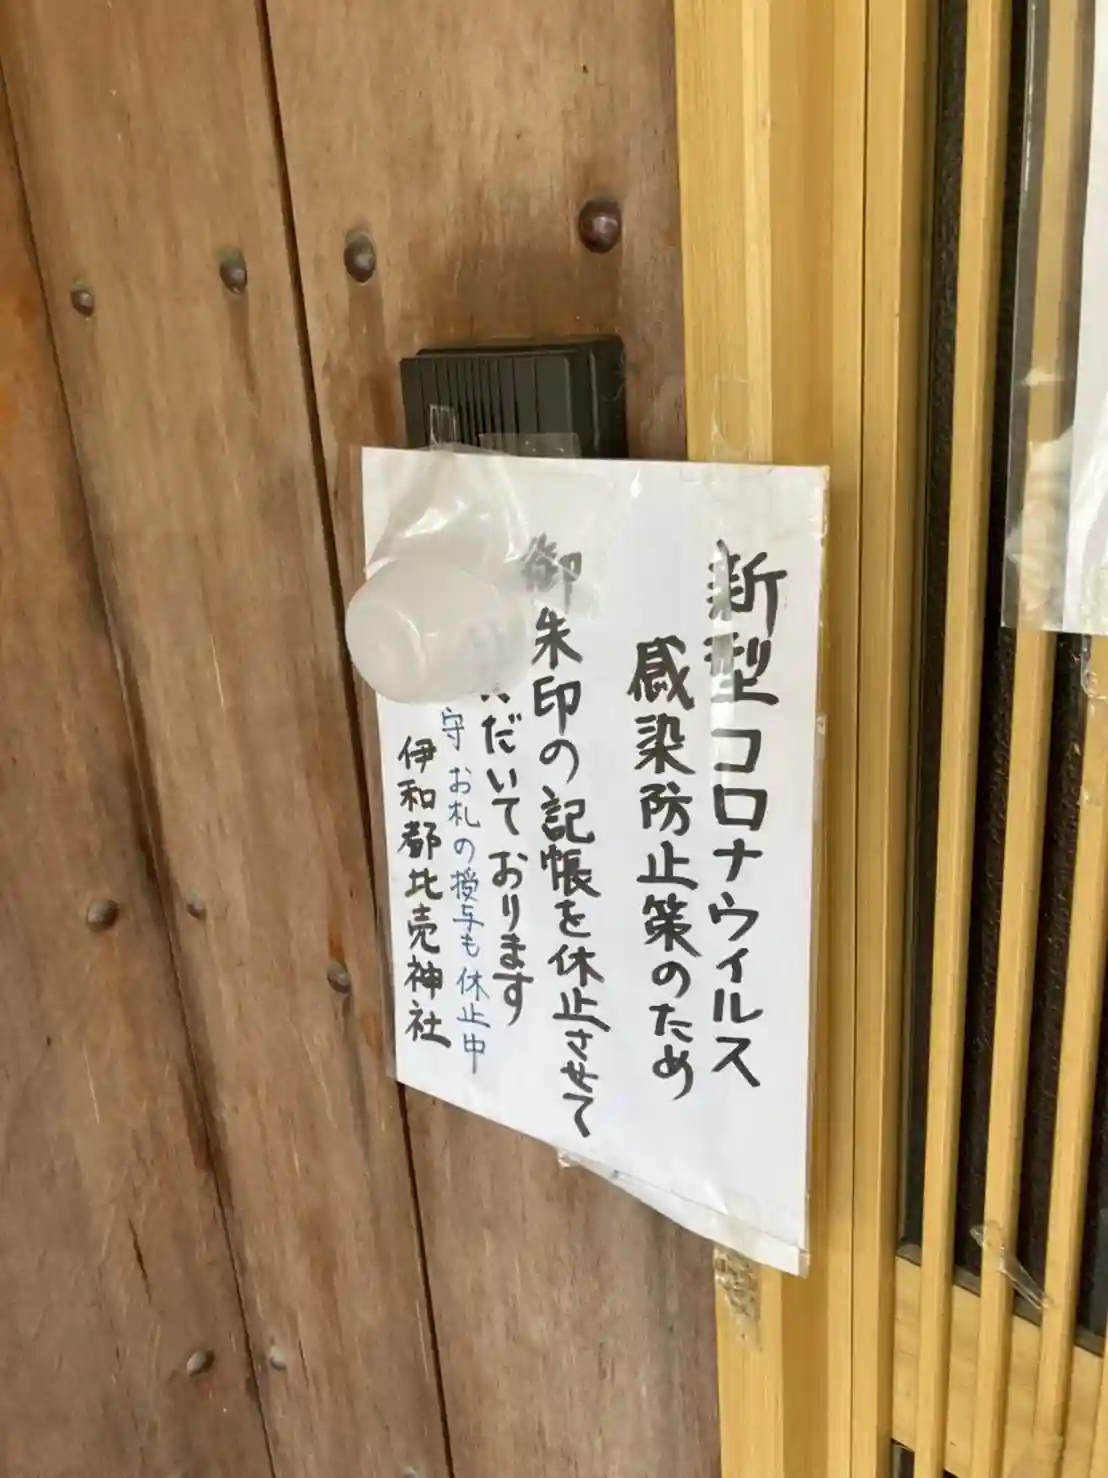 新型コロナウィルス
感染防止策のため
御朱印の記帳を休止させて
だいております
守 お札の授与も休止中
伊和都比売神社